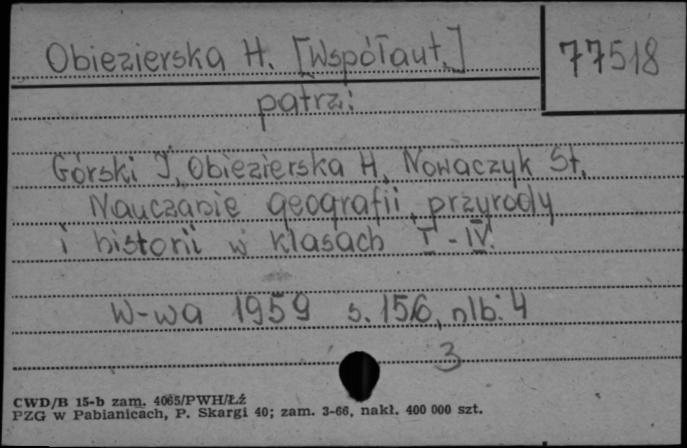 Obiezierska H. [Współaut.]
77518
patrz:
Górski J., Obiezierska H., Nowaczyk St.
Nauczanie geografii, przyrody
i historii w klasach I-IV.
W-wa 1959 s. 156, nlb. 4
3
CWD/B 15-b zam. 4065/PWH/Łź
PZG w Pabianicach, P. Skargi 40; zam. 3-66, nakł. 400 000 szt.